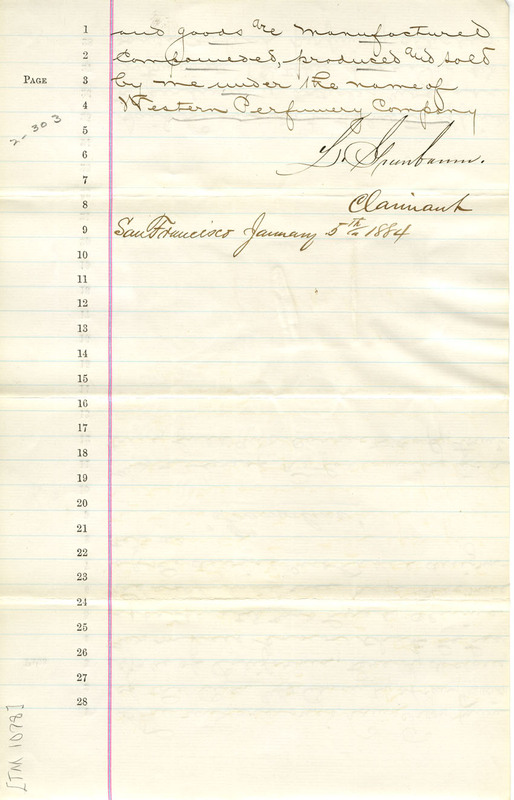 1 and goods are manufactured
2 Compounded, produced and sold
PAGE 3 by me under the name of
4 Western Perfumery Company
2-303
5
6 L. Grunbaum.
7
8 Claimant
9 San Francisco January 5th 1884
10
11
12
13
14
15
16
17
18
19
20
21
22
23
24
25
26
27
28
[TM 1078]